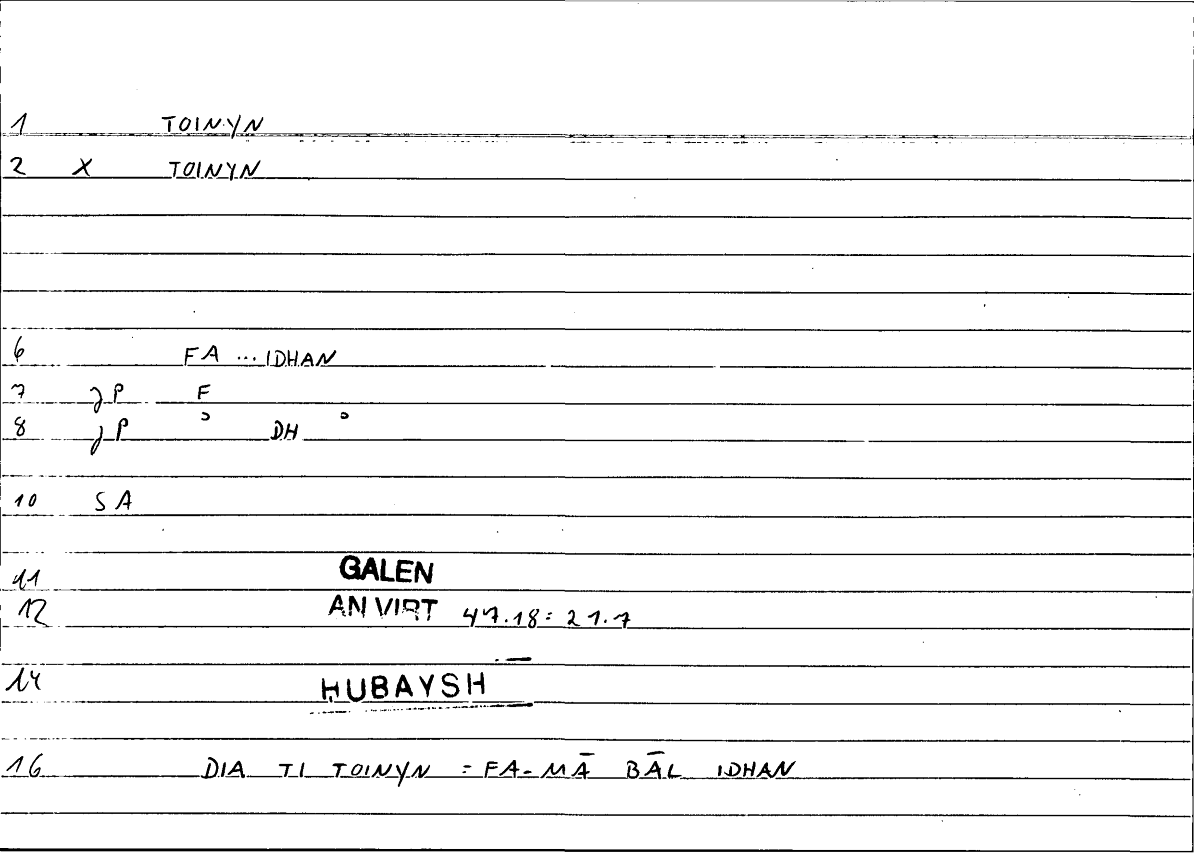 1 TOINYN
2 X TOINYN
6 FA ... IDHAN
7 P F
8 P DH
10 SA
11 GALEN
12 AN VIRT 47.18: 21.7
14 ḤUBAYSH
16 DIA TI TOINYN = FA-MĀ BĀL IDHAN